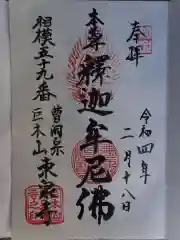 奉拝
令和四年
二月十八日
本尊
釋迦牟尼佛
相模五十九番
曹洞宗
巨木山東泉寺